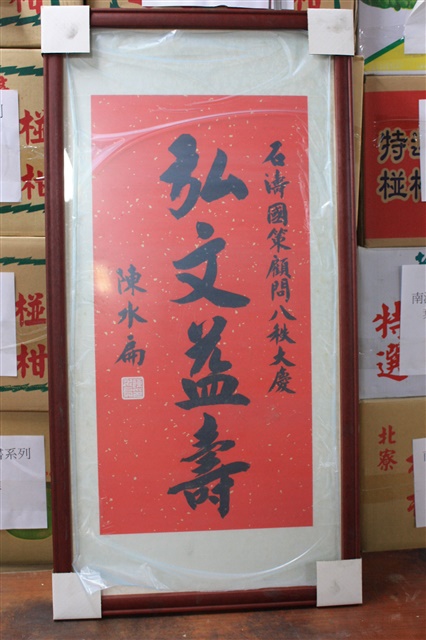 石濤國策顧問八秩大慶
弘文益壽
陳水扁
椪柑
椪柑
特選
椪柑
特選
北寮
書系列